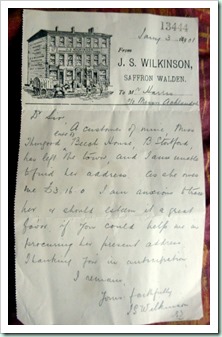 13444
Jany 3 1901
From
J. S. WILKINSON,
SAFFRON WALDEN.
To Mr Harris
Dr Sir,
A customer of mine, Miss
Beech House, B. Stortford,
has left the town, and I am unable
to find her address. As she owes
me £3.16.0 I am anxious to trace
her & should esteem it a great
favor if you could help me in
procuring her present address
Thanking you in anticipation
I remain
Yours faithfully
J S Wilkinson